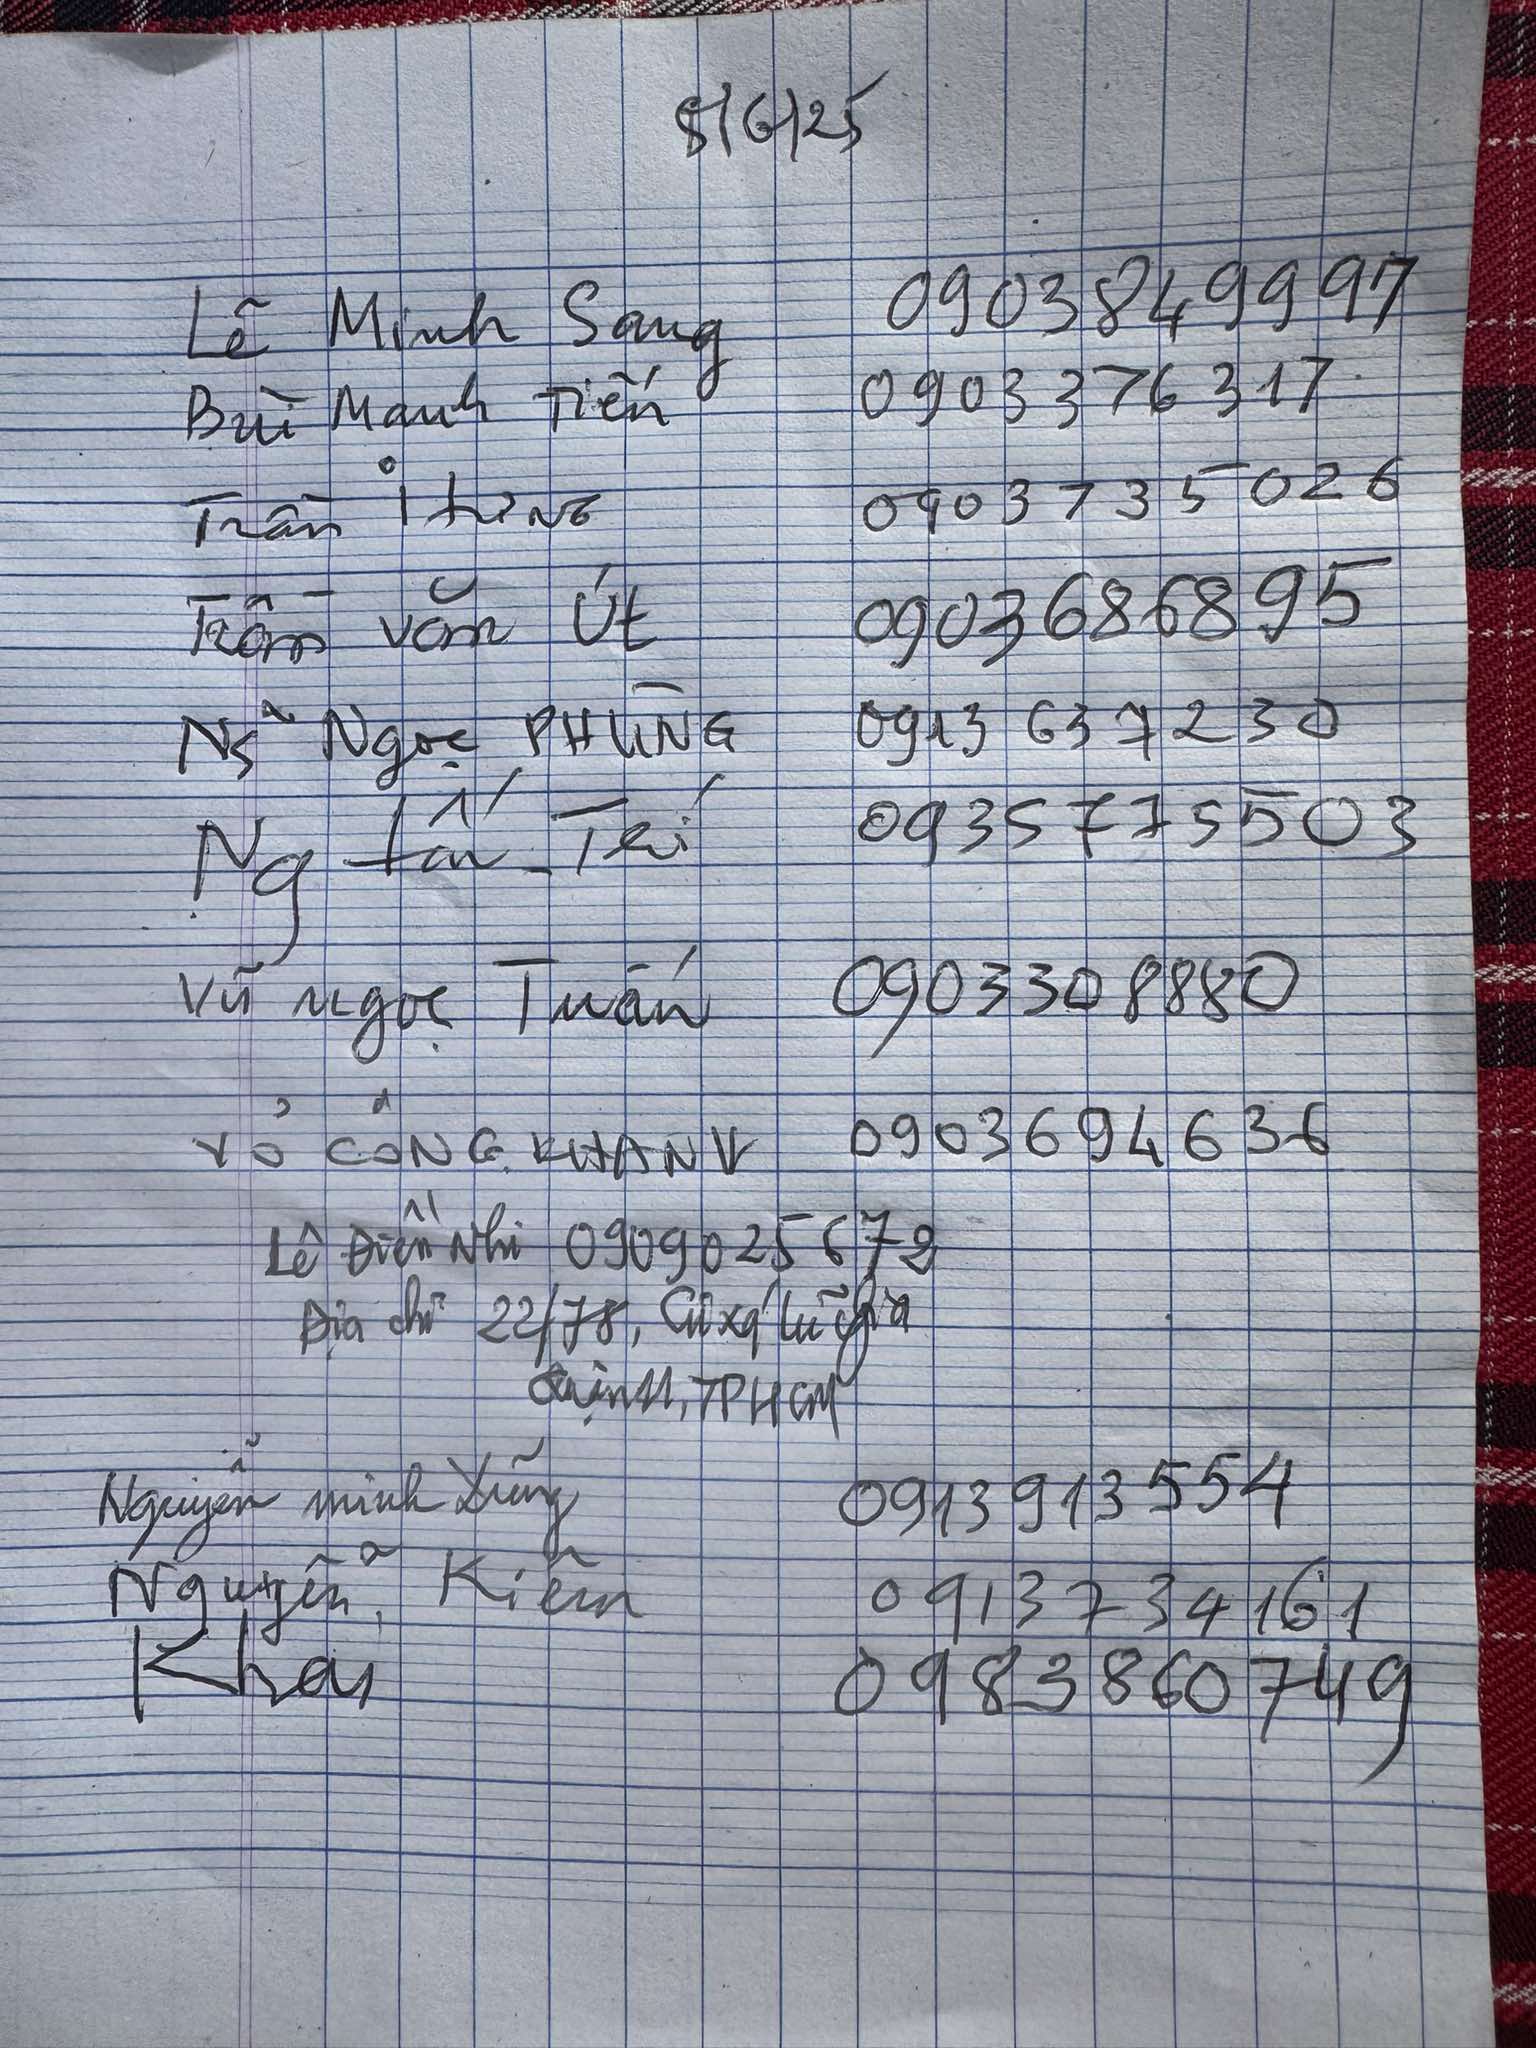 8/6/25
Lê Minh Sang 0903849997
Bùi Mạnh Tiến 0903376317
Trần 0903735026
Trần Văn Út 0903686895
Ng Ngọc PHÙNG 0913637230
Ng tấn Trí 0935775503
Vũ Ngọc Tuấn 0903308880
VÕ CÔNG KHANH 0903694636
Lê Điền Nhi 0909025672
Địa chỉ 22/78, Cư xá Lữ Gia
Quận 11, TPHCM
Nguyễn minh Dũng 0913913554
Nguyễn Kiểm 0913734161
Khai 0983860749